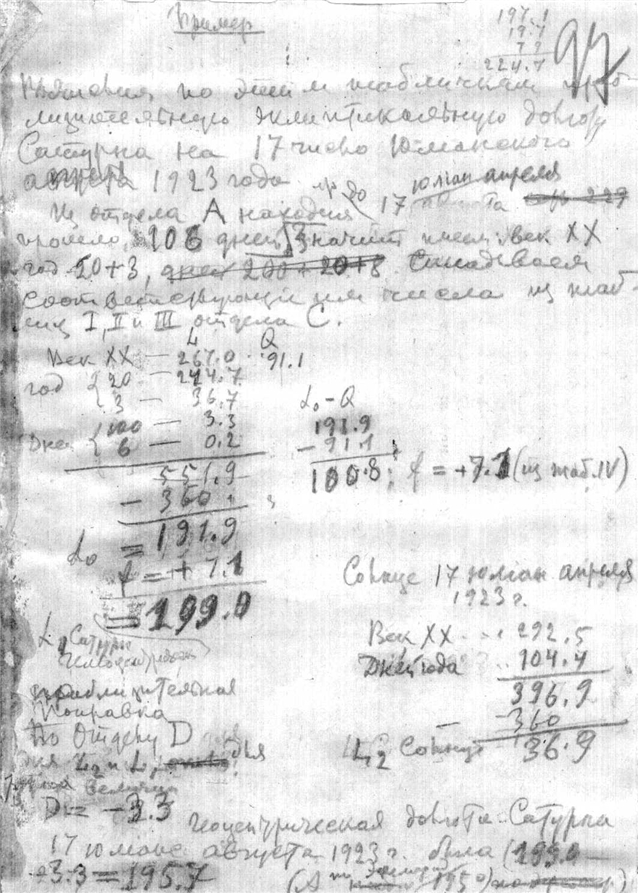 Пример
197.1
19.1
7?
224.7
97
по этим табличкам
эклиптикальную долготу
Сатурна на 17 число Юлианского
августа 1923 года
до 17 юлиан апреля августа
Из отдела А находим
прошло 106 дней значит имеем век XX
год 20+3, дней 200+20+8. Складываем
соответствующие им числа из таб-
лиц I, II и III отдела С.
L Q
Век XX — 267.0 91.1
год { 20 — 244.7
{ 3 — 36.7
Дней { 100 — 3.3
6 — 0.2
551.9
- 360
L₀ = 191.9
f = + 7.1
= 199.0
L₀-Q
191.9
- 91.1
100.8; f = +7.1 (из таб. IV)
Солнце 17 юлиан апреля
1923 г.
Век XX ... 292.5
Дней года .. 104.4
396.9
-360
L₂ Солнце 36.9
L₁ Сатурн
приблизительная
поправка
По Отделу D для
L₂ и L₁
D = -3.3
Геоцентрическая долгота Сатурна
17 юлиан августа 1923 г. была (199.0
-3.3 = 195.7